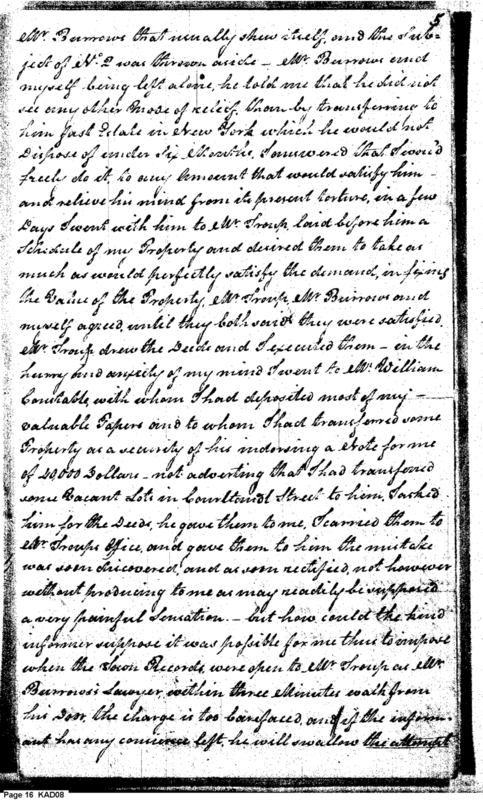 5
Mr. Burrows that usually shew itself, and the Sub-
ject of No. 2 was thrown aside – Mr. Burrows and
myself being left alone, he told me that he did not
see any other mode of relief, than by transferring to
him Estate in New York which he would not
Dispose of under six Months, I answered that I would
freely do it, to any Amount that would satisfy him –
and relieve his mind from its present torture, in a few
Days I went with him to Mr. Troup, laid before him a
Schedule of my Property and desired them to take as
much as would perfectly satisfy the demand, in fixing
the Value of the Property, Mr. Troup, Mr. Burrows and
myself agreed, until they both said they were satisfied,
Mr. Troup drew the Deeds and I executed them – in the
hurry and anxiety of my mind I went to Mr. William
Constable, with whom I had deposited most of my –
valuable Papers and to whom I had transferred some
Property as a security of his indorsing a Note for me
of 40,000 Dollars – not adverting that I had transferred
some Vacant Lots in Courtlandt Street to him, I asked
him for the Deeds, he gave them to me, I carried them to
Mr. Troups Office, and gave them to him the mistake
was soon discovered, and as soon rectified, not however
without producing to me as may readily be supposed
a very painful Sensation. – but how could the kind
informer suppose it was possible for me thus to impose
when the Town Records, were open to Mr. Troup as Mr.
Burrows's Lawyer, within three Minutes walk from
his Door, the charge is too barefaced, and if the inform-
ant has any concience left, he will swallow the attempt
Page 16 KAD08